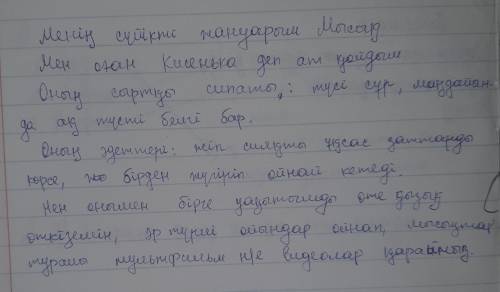 Менің сүйікті жануарым Мысық
Мен оған Кисенька деп ат қойдым
Оның сыртқы сипаты,: түсі сұр, маңдайын-
да ақ түсті белгі бар.
Оның әдеттері: жіп сияқты ұқсас заттарды
көрсе, бірден жүгіріп ойнай кетеді.
Мен онымен бірге уақытымды өте қызық
өткіземін, әр түрлі ойындар ойнап, мысықтар
туралы мультфильм н/е видеолар қараймыз.